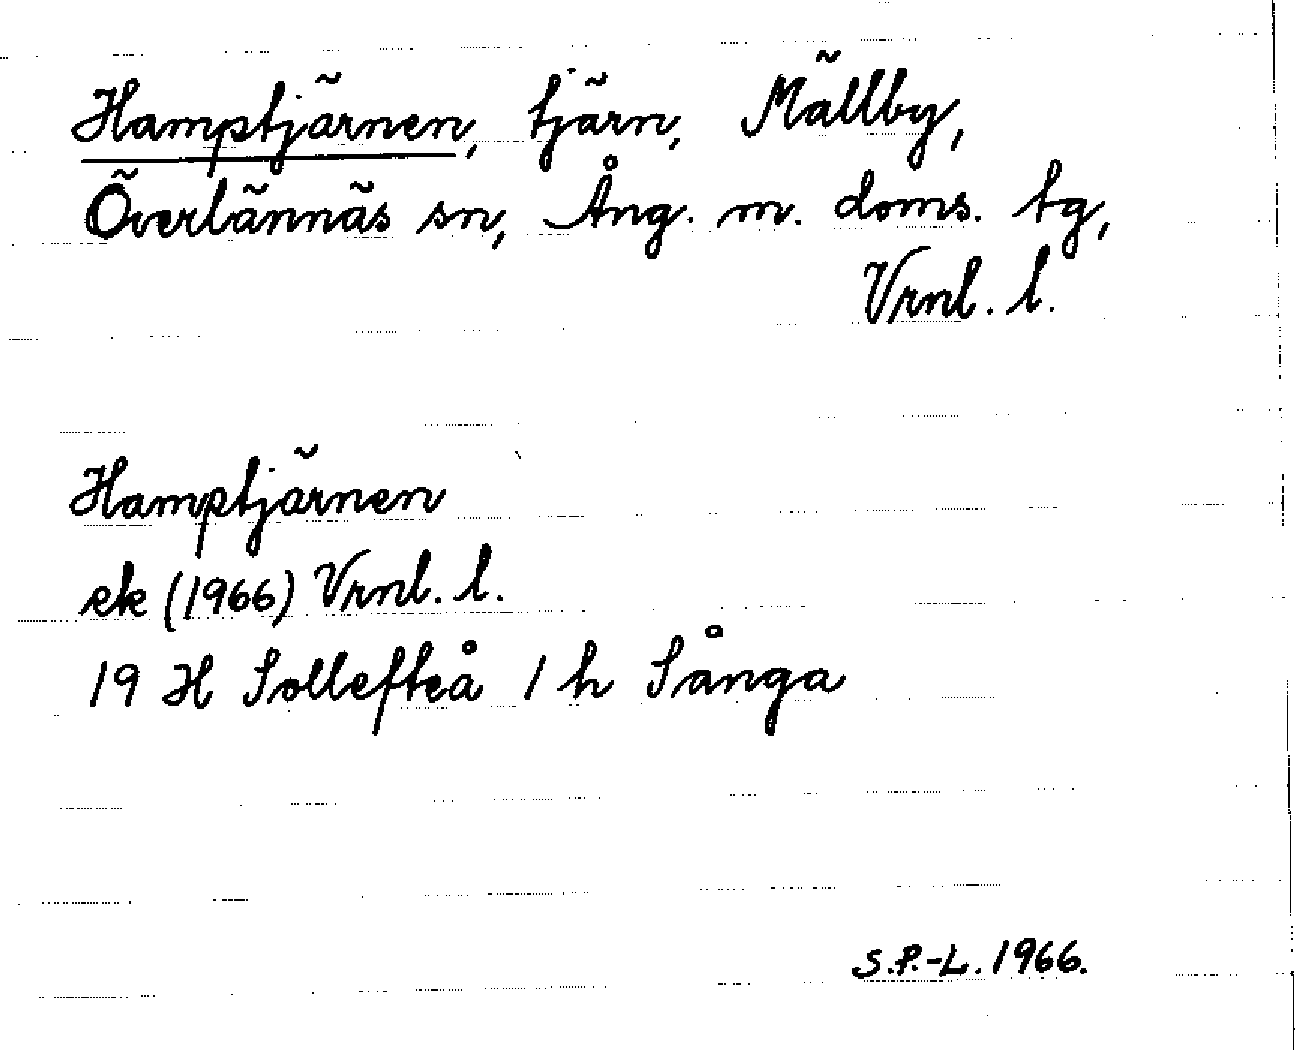 Hamptjärnen, tjärn, Mällby,
Överlännäs sn, Ång. m. doms. tg,
Vrnl. l.
Hamptjärnen
ek (1966) Vrnl. l.
19 H Sollefteå 1 h Sånga
S.P.-L. 1966.